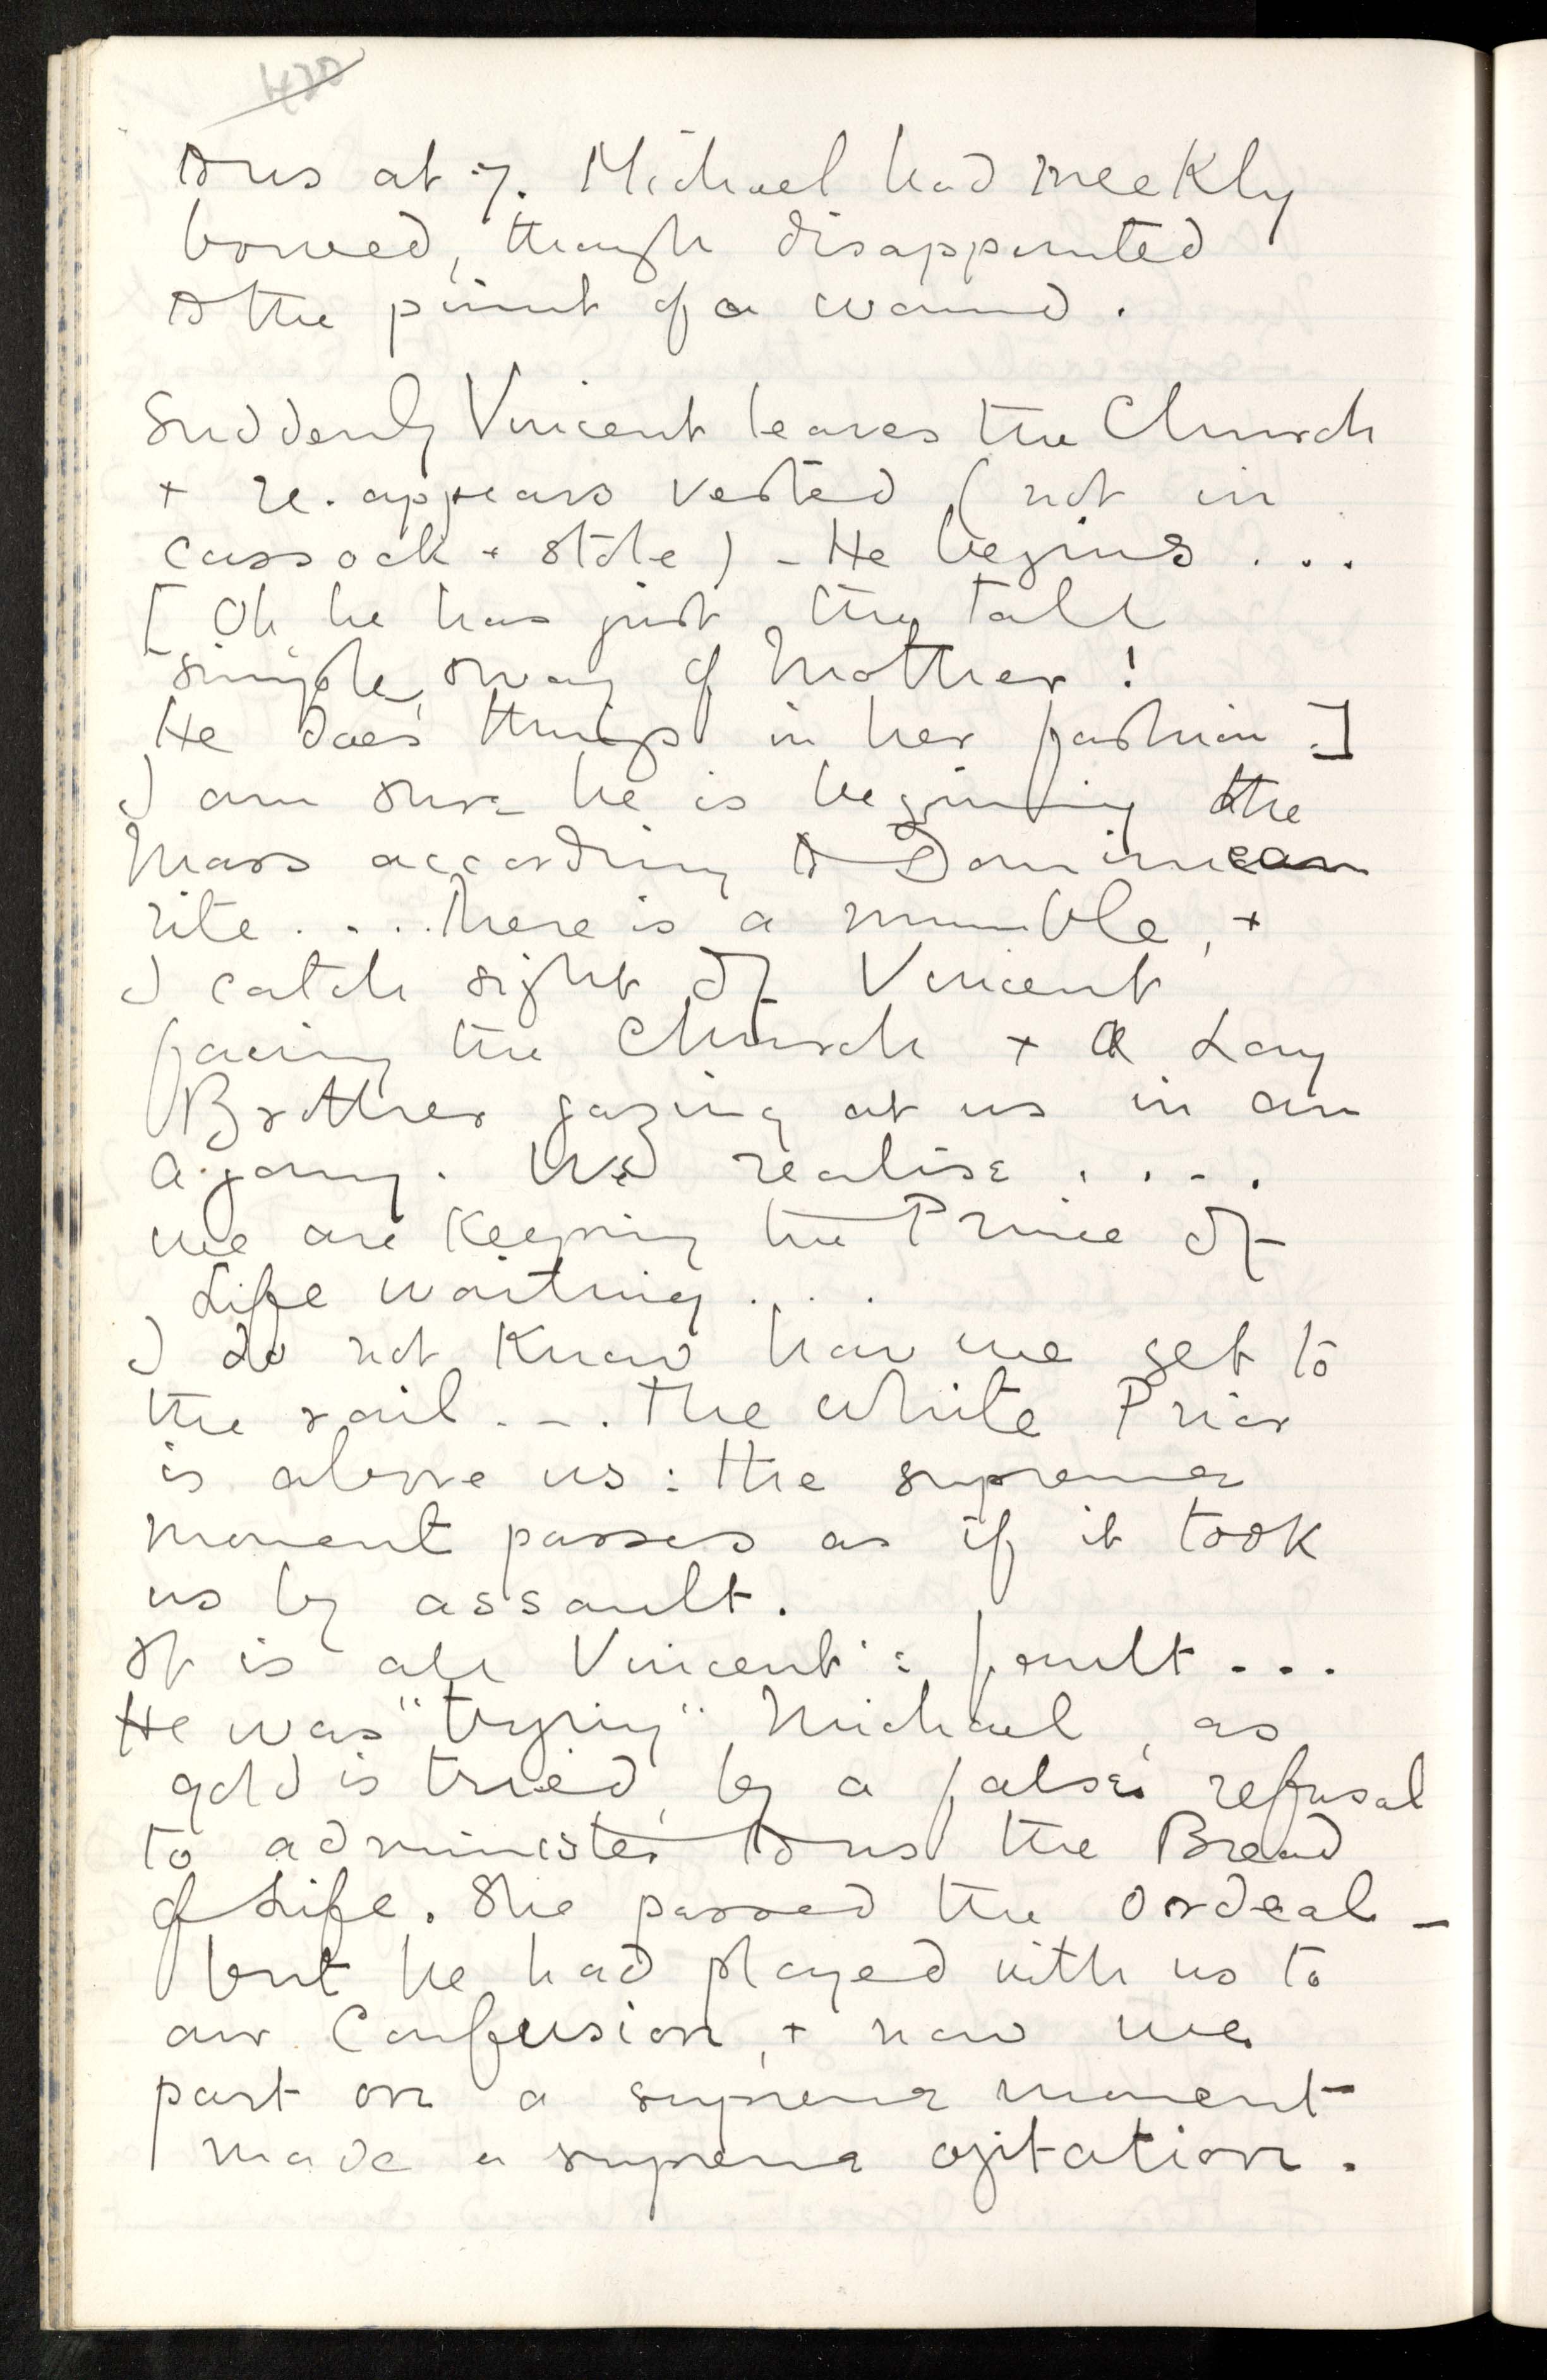 420
to us at 7. Michael had meekly
bowed, though disappointed
to the point of a wound.
Suddenly Vincent leaves the Church
+ re-appears vested (not in
cassock + stole) - He begins ...
[Oh he has just the tall
simple, sway of Mother!
He does things in her fashion.]
I am sure he is beginning the
Mass according to Dominican
rite .... there is a mumble, +
I catch sight of Vincent
facing the Church + a Lay
Brother gazing at us in an
agony. We realise ....
we are keeping the Prince of
Life waiting ...
I do not know how we get to
the rail... The White Prior
is above us: the supreme
moment passes as if it took
us by assault.
It is all Vincent's fault ...
He was "trying" Michael, as
gold is tried, by a false refusal
to administer to us the Bread
of Life. She passed the ordeal -
but he had played with us to
our confusion, + now we
part on a supreme moment
made a supreme agitation.